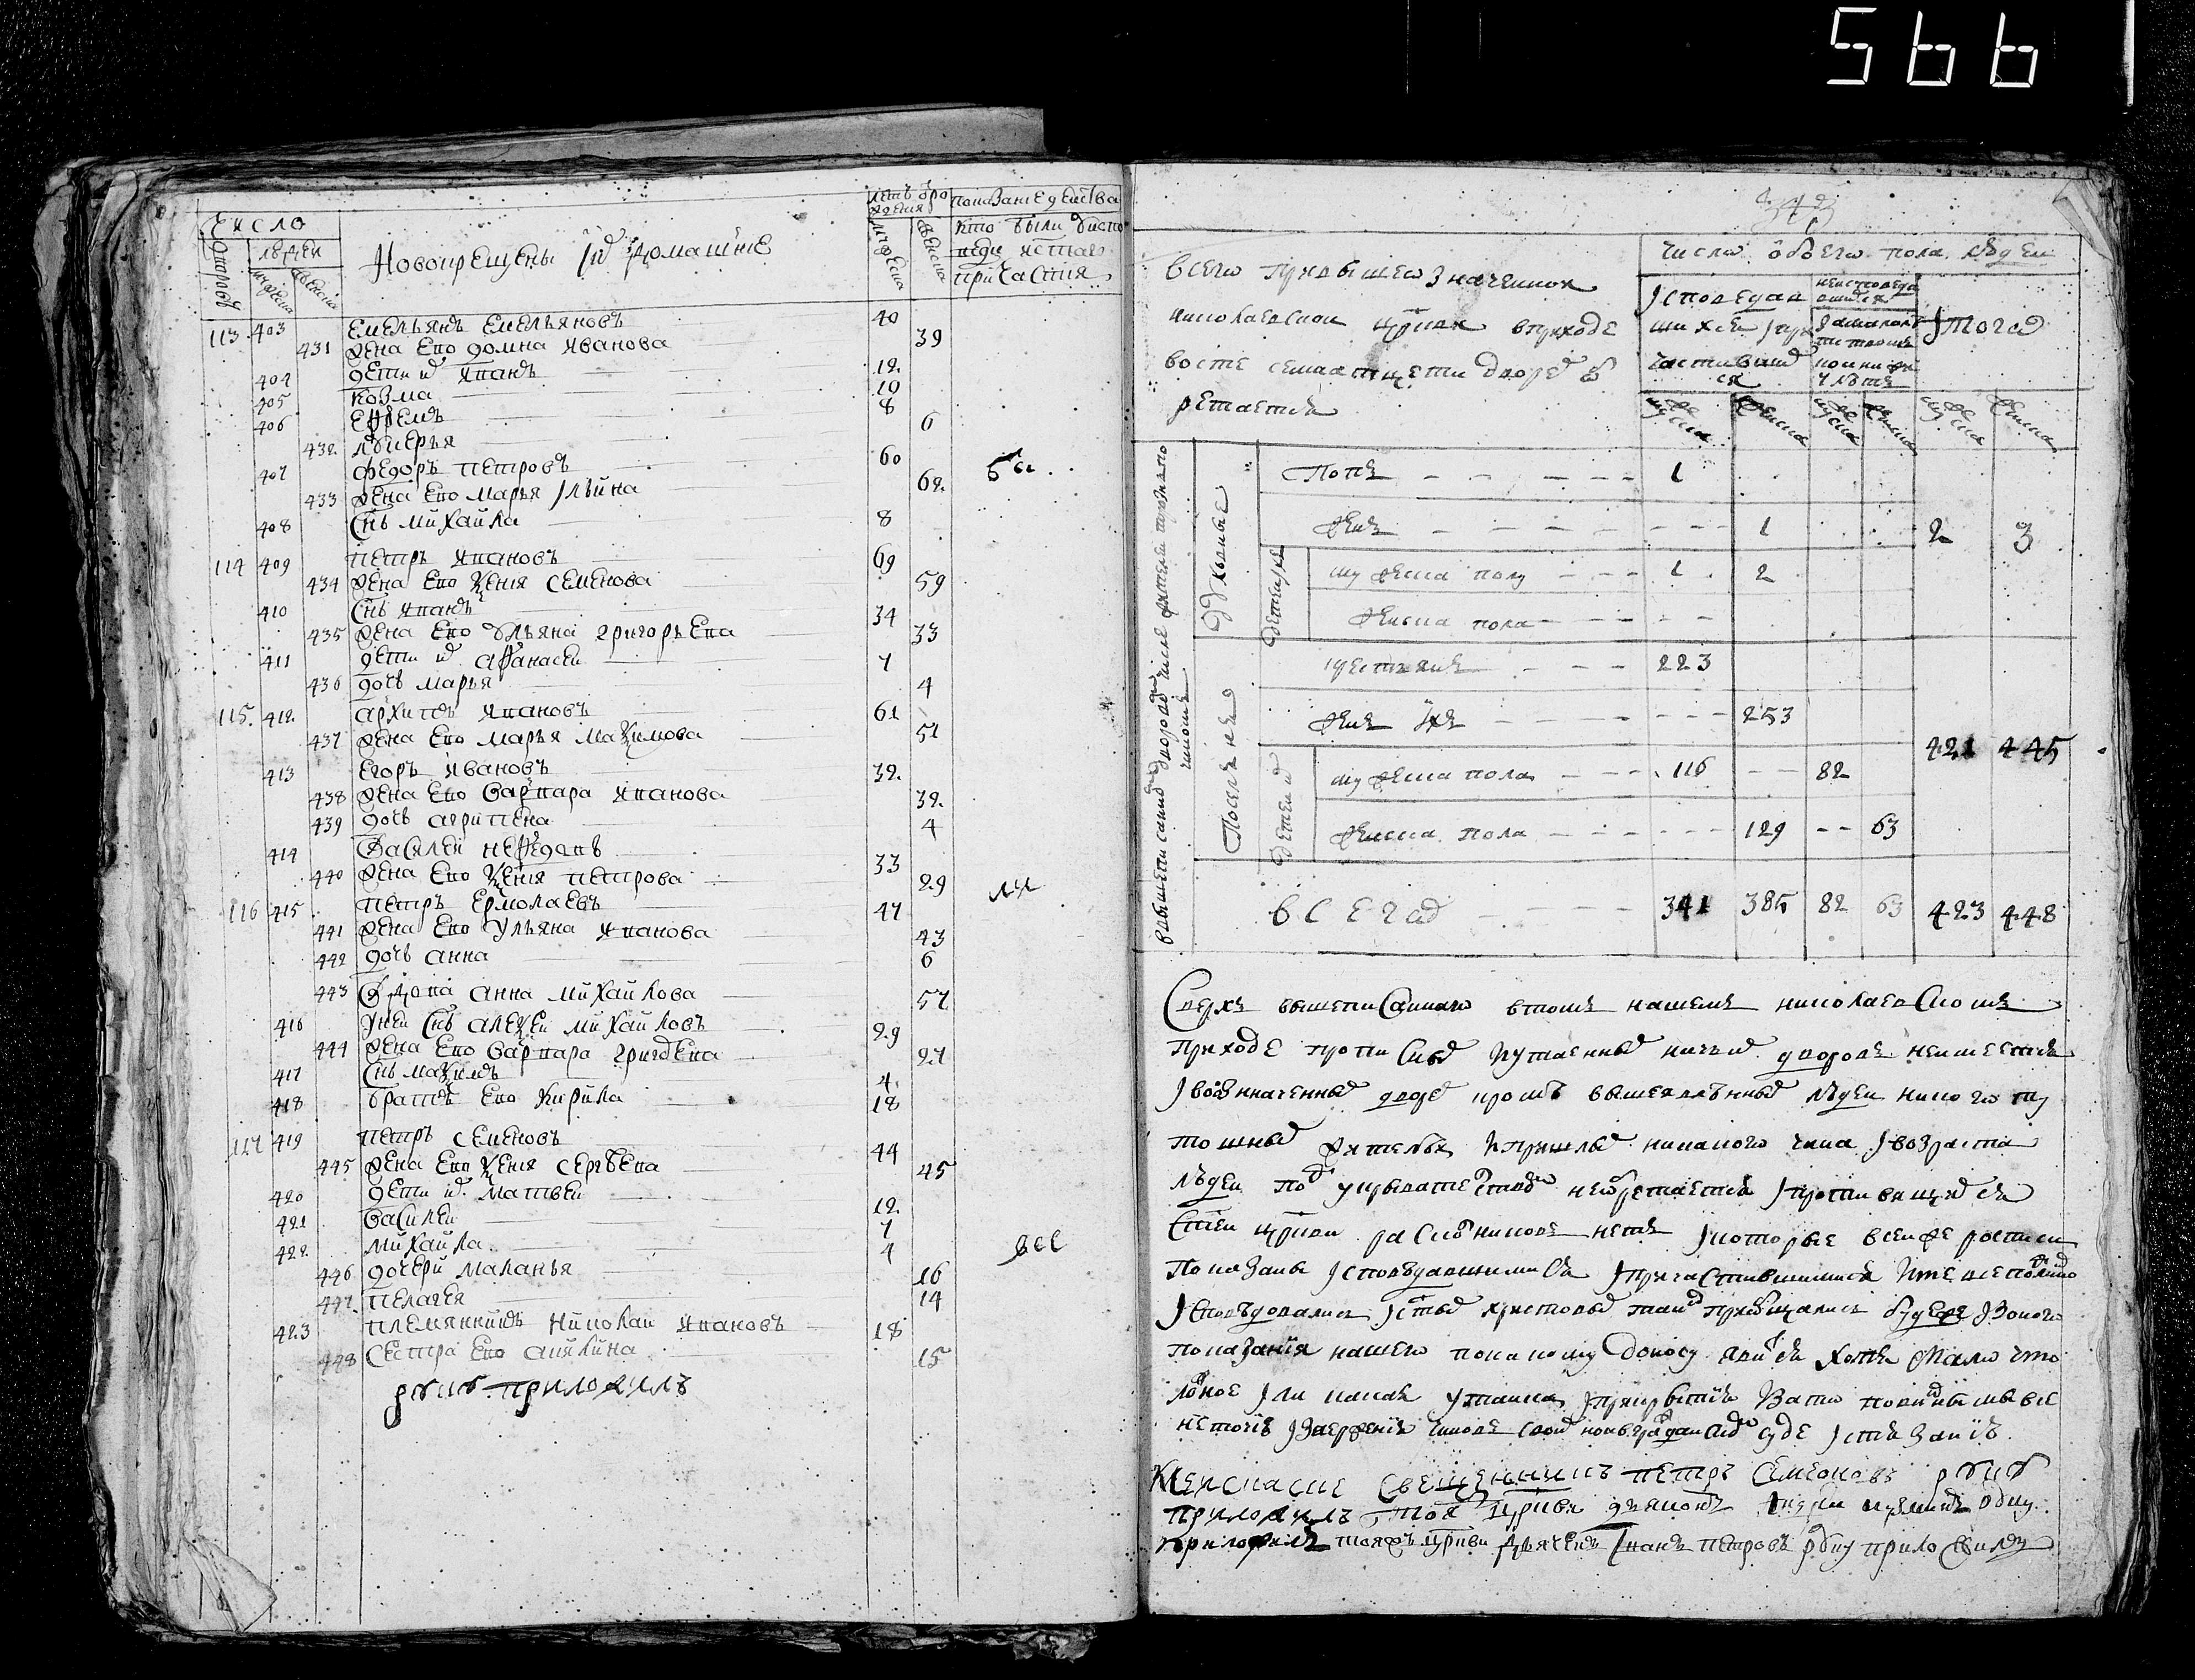 566
число
дворовъ
людей
мужеска
женска
Новокрещены и их домашние
летъ от рождения
мужеска
женска
показание действа
кто были у исповеди и святаго причастия
113 403 Емельянъ Емельяновъ 40
431 жена ево домна иванова 39
404 дети их иванъ 12
405 козма 10
406 Ефремъ 8
432 лукерья 6
407 федоръ петровъ 60
433 жена ево марья ильина 62
408 снъ михайла 8
114 409 петръ ивановъ 69
434 жена ево Ѯения семенова 59
410 снъ иванъ 34
435 жена ево ульяна григорьева 33
411 дети их афанасей 7
436 дочь марья 4
115 412 архипъ ивановъ 61
437 жена ево марья маѯимова 51
413 Егоръ ивановъ 32
438 жена ево варвара иванова 32
439 дочь агрипена 4
414 василей нефедовъ 33
440 жена ево Ѯения петрова 29
116 415 петръ ермолаевъ 47
441 жена ево ульяна иванова 43
442 дочь анна 6
443 вдова анна михайлова 57
416 у ней снъ алеѯей михайловъ 29
444 жена ево варвара григорьева 27
417 снъ маѯимъ 4
418 братъ ево кирила 18
117 419 петръ семеновъ 44
445 жена ево Ѯения сергеева 45
420 дети их матвей 12
421 василей 7
422 михайла 4
446 дочери маланья 16
447 пелагея 14
423 племянникъ николай ивановъ 18
448 сестра ево акилина 15
все
руку приложилъ
всего при вышеозначенной
николаевской цркви в приходе
во сте семнатцети дворех об
ретается
число обоего пола людей
исповедав шихся и при частивших ся
Итого
мужеска женска мужеска женска мужеска женска
духовные
Попъ 1
женъ 1
2 3
детей их
мужеска полу 1 2
женска пола
крестьянъ 223
женъ их 253
421 445
детей их
мужеска пола 116 82
женска пола 129 63
всего 341 385 82 63 423 448
Сверхъ вышеписанного в томъ нашемъ николаевскомъ
приходе прописных и утаенных ничьих дворовъ не имеется
и в означенных дворех кромъ вышеявленных людей никого ту
тошных жителей и пришлых никакого чина и возраста
людей под укрывательством не обретается и противящихся
стей цркви раскольниковъ нетъ и которые в сей же росписи
показаны исповедавшимися и причастившимися и те все
исповедовались и стых христовых таин приобщались буде же из сего
показания нашего по какому доносу явится хотя мало что
ложное или какая утайка
суде и стязание
священникъ петръ семеновъ руку
приложилъ тоя цркви
приложилъ тоя жъ цркви дьячекъ Иванъ петровъ руку приложилъ